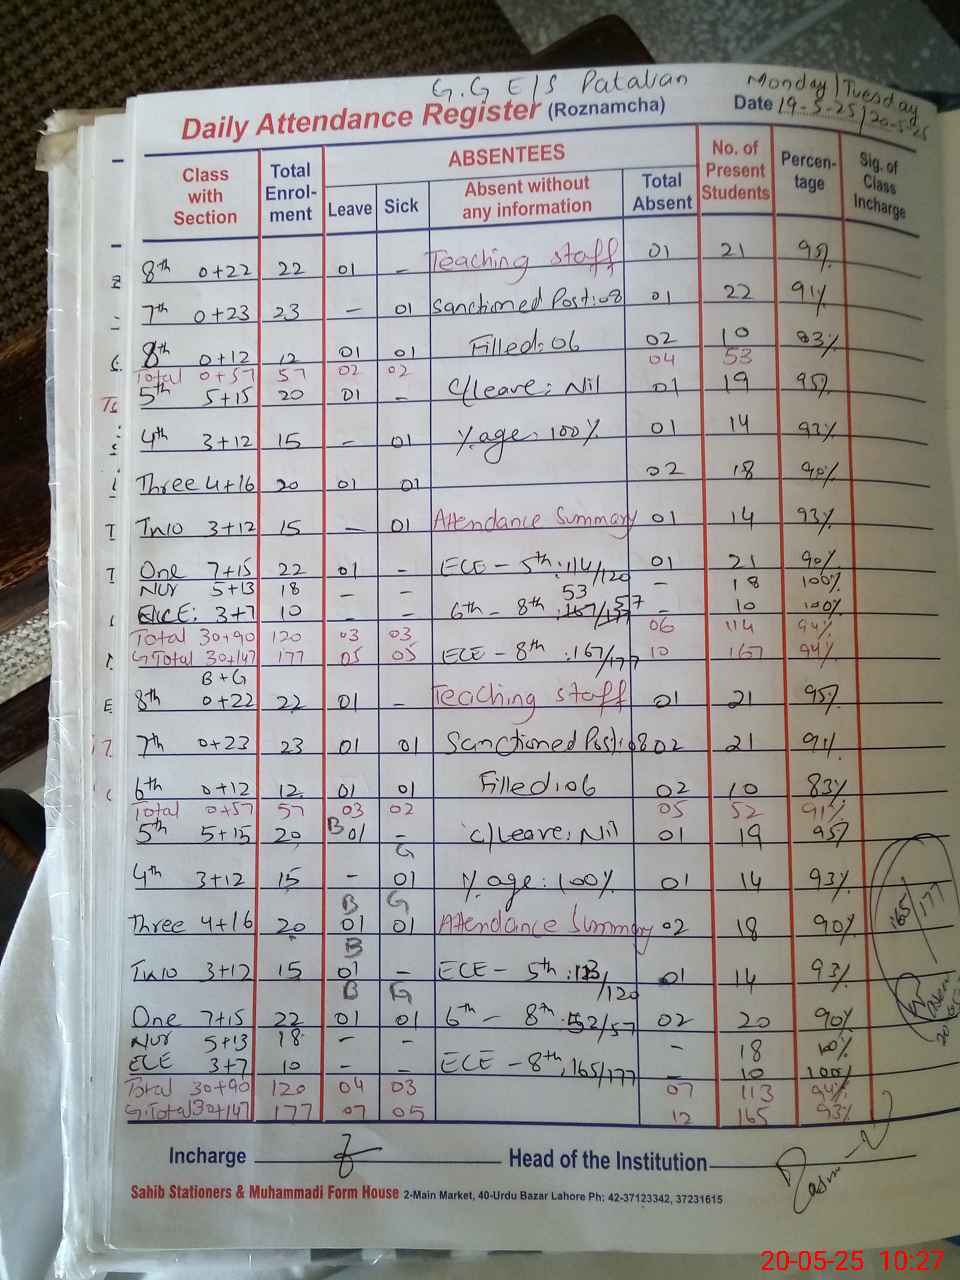 G.G E/S Patalian Monday/Tuesday
Daily Attendance Register (Roznamcha) Date 19-5-25/20-5-25
Class with Section Total Enrol-ment ABSENTEES No. of Present Students Percen-tage Sig. of Class Incharge
Leave Sick Absent without any information Total Absent
8th 0+22 22 01 - Teaching staff 01 21 95%
7th 0+23 23 - 01 Sanctioned Post:08 01 22 91%
8th 0+12 12 01 01 Filled:06 02 10 83%
Total 0+57 57 02 02 04 53
5th 5+15 20 01 - C/Leave: Nil 01 19 95%
4th 3+12 15 - 01 %age: 100% 01 14 93%
Three 4+16 20 01 01 02 18 90%
Two 3+12 15 - 01 Attendance Summary 01 14 93%
One 7+15 22 01 - ECE - 5th:114/120 01 21 90%
Nur 5+13 18 - - 53 - 18 100%
ECE: 3+7 10 - - 6th - 8th 57 - 10 100%
Total 30+90 120 03 03 06 114 94%
G.Total 30+147 177 05 05 ECE - 8th:167/177 10 167 94%
B+G
8th 0+22 22 01 - Teaching staff 01 21 95%
7th 0+23 23 01 01 Sanctioned Post:08 02 21 91%
6th 0+12 12 01 01 Filled:06 02 10 83%
Total 0+57 57 03 02 05 52 91%
5th 5+15 20 B 01 - C/Leave: Nil 01 19 95%
G
4th 3+12 15 - 01 %age: 100% 01 14 93%
B G
Three 4+16 20 01 01 Attendance Summary 02 18 90%
B
Two 3+12 15 01 - ECE - 5th:113/120 01 14 93%
B G
One 7+15 22 01 01 6th - 8th:52/57 02 20 90%
Nur 5+13 18 - - - 18 100%
ECE 3+7 10 - - ECE - 8th:165/177 - 10 100%
Total 30+90 120 04 03 07 113 94%
G.Total 30+147 177 07 05 12 165 93%
165/177
Incharge Head of the Institution
Sahib Stationers & Muhammadi Form House 2-Main Market, 40-Urdu Bazar Lahore Ph: 42-37123342, 37231615
20-05-25 10:27